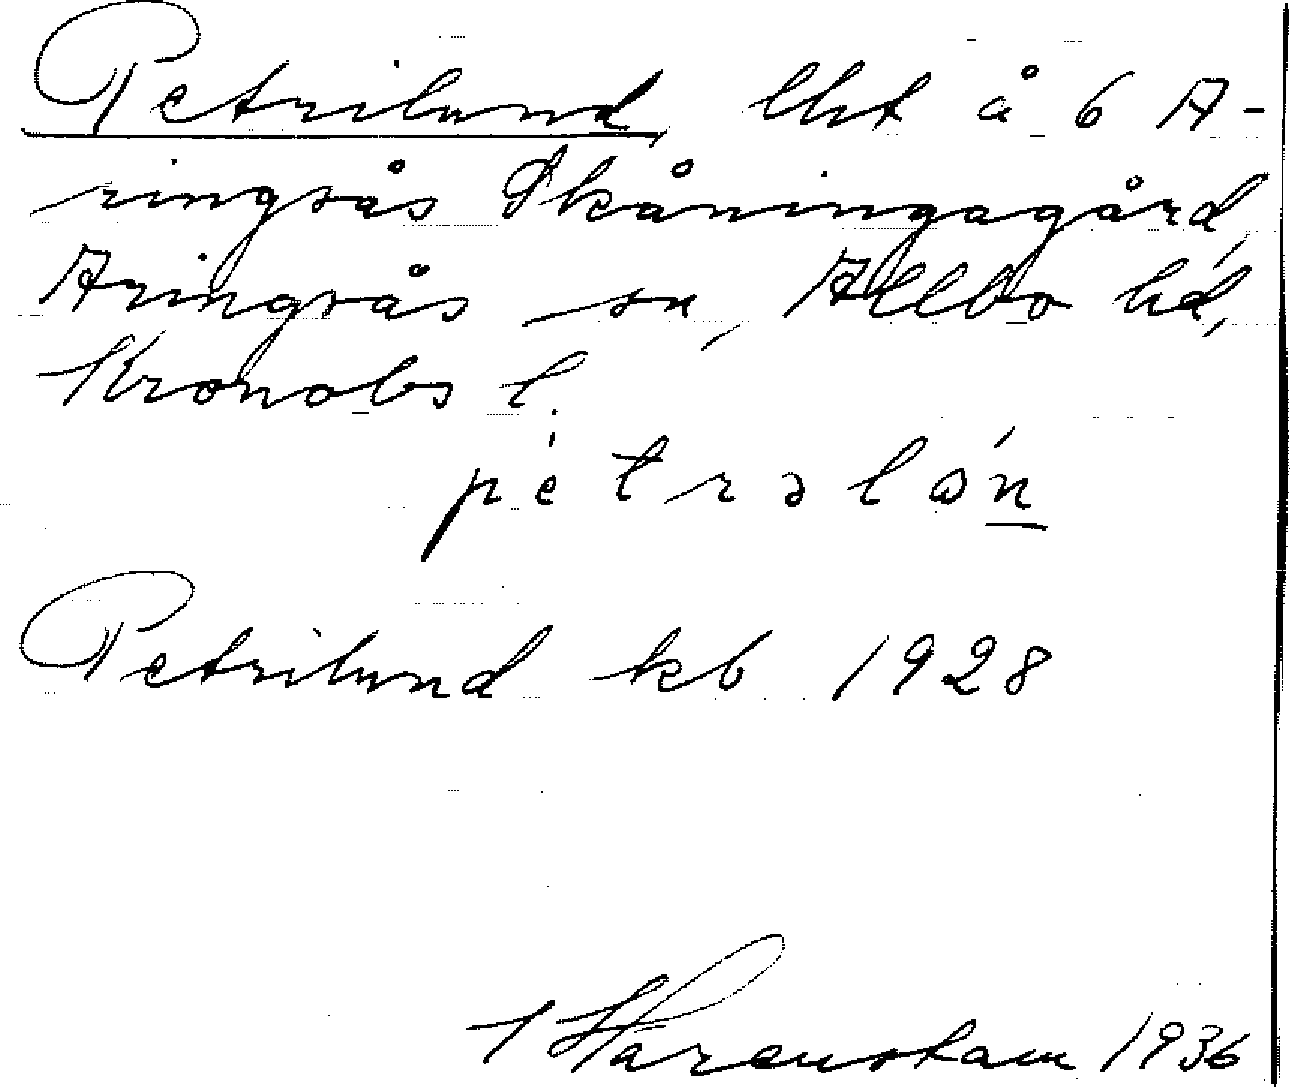 Petrilund lht å 6 A-
ringsås Skåningagård,
Aringsås sn, Allbo hd,
Kronobs l.
pètrələ́n
Petrilund kb 1928
Harenstam 1936